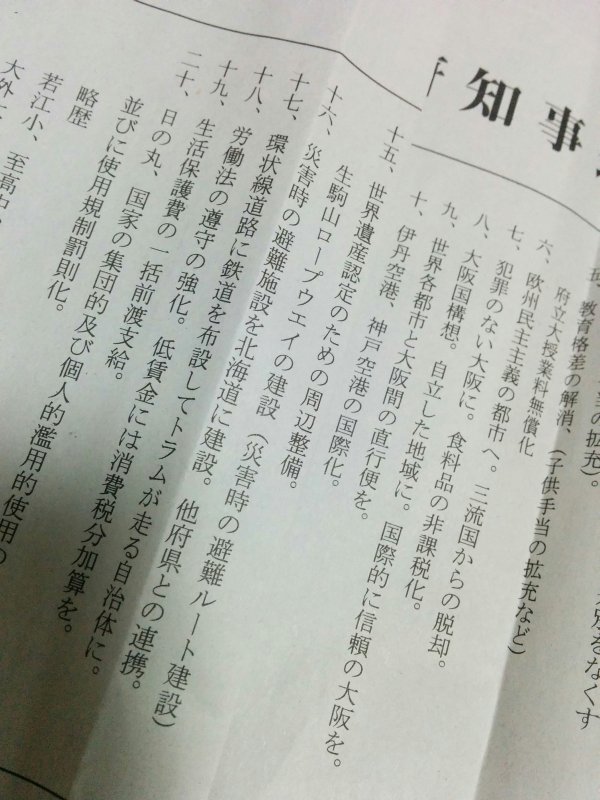 知事
当の拡充)。
教育格差の解消、(子供手当の拡充など)
府立大授業料無償化
六、欧州民主主義の都市へ。三流国からの脱却。
七、犯罪のない大阪に。食料品の非課税化。
八、大阪国構想。自立した地域に。国際的に信頼の大阪を。
九、世界各都市と大阪間の直行便を。
十、伊丹空港、神戸空港の国際化。
十五、世界遺産認定のための周辺整備。
生駒山ロープウエイの建設(災害時の避難ルート建設)
十六、災害時の避難施設を北海道に建設。他府県との連携。
十七、環状線道路に鉄道を布設してトラムが走る自治体に。
十八、労働法の遵守の強化。低賃金には消費税分加算を。
十九、生活保護費の一括前渡支給。
二十、日の丸、国家の集団的及び個人的濫用的使用の
並びに使用規制罰則化。
略歴
若江小、至高中、
大外